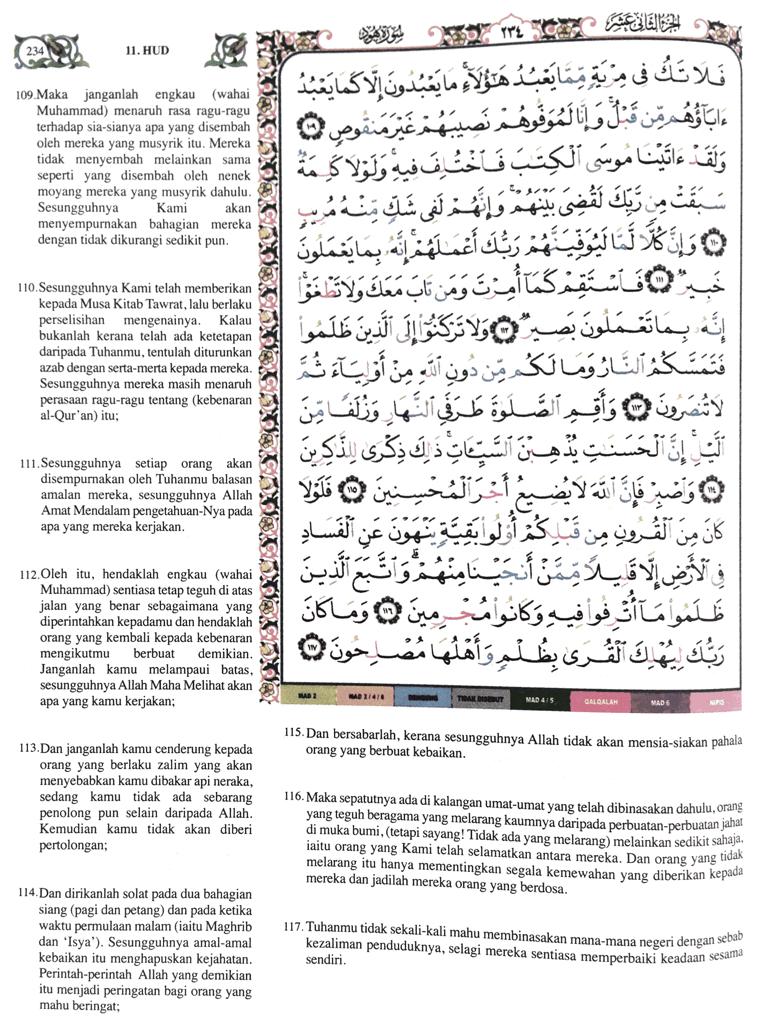 234
11. HUD
109.Maka janganlah engkau (wahai
Muhammad) menaruh rasa ragu-ragu
terhadap sia-sianya apa yang disembah
oleh mereka yang musyrik itu. Mereka
tidak menyembah melainkan sama
seperti yang disembah oleh nenek
moyang mereka yang musyrik dahulu.
Sesungguhnya Kami akan
menyempurnakan bahagian mereka
dengan tidak dikurangi sedikit pun.
110.Sesungguhnya Kami telah memberikan
kepada Musa Kitab Tawrat, lalu berlaku
perselisihan mengenainya. Kalau
bukanlah kerana telah ada ketetapan
daripada Tuhanmu, tentulah diturunkan
azab dengan serta-merta kepada mereka.
Sesungguhnya mereka masih menaruh
perasaan ragu-ragu tentang (kebenaran
al-Qur'an) itu;
111.Sesungguhnya setiap orang akan
disempurnakan oleh Tuhanmu balasan
amalan mereka, sesungguhnya Allah
Amat Mendalam pengetahuan-Nya pada
apa yang mereka kerjakan.
112.Oleh itu, hendaklah engkau (wahai
Muhammad) sentiasa tetap teguh di atas
jalan yang benar sebagaimana yang
diperintahkan kepadamu dan hendaklah
orang yang kembali kepada kebenaran
mengikutmu berbuat demikian.
Janganlah kamu melampaui batas,
sesungguhnya Allah Maha Melihat akan
apa yang kamu kerjakan;
113.Dan janganlah kamu cenderung kepada
orang yang berlaku zalim yang akan
menyebabkan kamu dibakar api neraka,
sedang kamu tidak ada sebarang
penolong pun selain daripada Allah.
Kemudian kamu tidak akan diberi
pertolongan;
114.Dan dirikanlah solat pada dua bahagian
siang (pagi dan petang) dan pada ketika
waktu permulaan malam (iaitu Maghrib
dan 'Isya'). Sesungguhnya amal-amal
kebaikan itu menghapuskan kejahatan.
Perintah-perintah Allah yang demikian
itu menjadi peringatan bagi orang yang
mahu beringat;
الجزء الثاني عشر
٢٣٤
سورة هود
فَلَا تَكُ فِى مِرْيَةٍ مِّمَّا يَعْبُدُ هَٰٓؤُلَآءِ ۚ مَا يَعْبُدُونَ إِلَّا كَمَا يَعْبُدُ
ءَابَآؤُهُم مِّن قَبْلُ ۚ وَإِنَّا لَمُوَفُّوهُمْ نَصِيبَهُمْ غَيْرَ مَنقُوصٍ ١٠٩
وَلَقَدْ ءَاتَيْنَا مُوسَى الْكِتَٰبَ فَاخْتُلِفَ فِيهِ ۚ وَلَوْلَا كَلِمَةٌ
سَبَقَتْ مِن رَّبِّكَ لَقُضِىَ بَيْنَهُمْ ۚ وَإِنَّهُمْ لَفِى شَكٍّ مِّنْهُ مُرِيبٍ
١١٠ وَإِنَّ كُلًّا لَّمَّا لَيُوَفِّيَنَّهُمْ رَبُّكَ أَعْمَٰلَهُمْ ۚ إِنَّهُۥ بِمَا يَعْمَلُونَ
خَبِيرٌ ١١١ فَاسْتَقِمْ كَمَآ أُمِرْتَ وَمَن تَابَ مَعَكَ وَلَا تَطْغَوْا۟ ۚ
إِنَّهُۥ بِمَا تَعْمَلُونَ بَصِيرٌ ١١٢ وَلَا تَرْكَنُوٓا۟ إِلَى الَّذِينَ ظَلَمُوا۟
فَتَمَسَّكُمُ النَّارُ وَمَا لَكُم مِّن دُونِ اللَّهِ مِنْ أَوْلِيَآءَ ثُمَّ
لَا تُنصَرُونَ ١١٣ وَأَقِمِ الصَّلَوٰةَ طَرَفَىِ النَّهَارِ وَزُلَفًا مِّنَ
الَّيْلِ ۚ إِنَّ الْحَسَنَٰتِ يُذْهِبْنَ السَّيِّـَٔاتِ ۚ ذَٰلِكَ ذِكْرَىٰ لِلذَّٰكِرِينَ
١١٤ وَاصْبِرْ فَإِنَّ اللَّهَ لَا يُضِيعُ أَجْرَ الْمُحْسِنِينَ ١١٥ فَلَوْلَا
كَانَ مِنَ الْقُرُونِ مِن قَبْلِكُمْ أُو۟لُوا۟ بَقِيَّةٍ يَنْهَوْنَ عَنِ الْفَسَادِ
فِى الْأَرْضِ إِلَّا قَلِيلًا مِّمَّنْ أَنجَيْنَا مِنْهُمْ ۗ وَاتَّبَعَ الَّذِينَ
ظَلَمُوا۟ مَآ أُتْرِفُوا۟ فِيهِ وَكَانُوا۟ مُجْرِمِينَ ١١٦ وَمَا كَانَ
رَبُّكَ لِيُهْلِكَ الْقُرَىٰ بِظُلْمٍ وَأَهْلُهَا مُصْلِحُونَ ١١٧
MAD 2 MAD 2/4/6 DENGUNG TIDAK DISEBUT MAD 4/5 QALQALAH MAD 6 NIPIS
115. Dan bersabarlah, kerana sesungguhnya Allah tidak akan mensia-siakan pahala
orang yang berbuat kebaikan.
116. Maka sepatutnya ada di kalangan umat-umat yang telah dibinasakan dahulu, orang
yang teguh beragama yang melarang kaumnya daripada perbuatan-perbuatan jahat
di muka bumi, (tetapi sayang! Tidak ada yang melarang) melainkan sedikit sahaja,
iaitu orang yang Kami telah selamatkan antara mereka. Dan orang yang tidak
melarang itu hanya mementingkan segala kemewahan yang diberikan kepada
mereka dan jadilah mereka orang yang berdosa.
117. Tuhanmu tidak sekali-kali mahu membinasakan mana-mana negeri dengan sebab
kezaliman penduduknya, selagi mereka sentiasa memperbaiki keadaan sesama
sendiri.